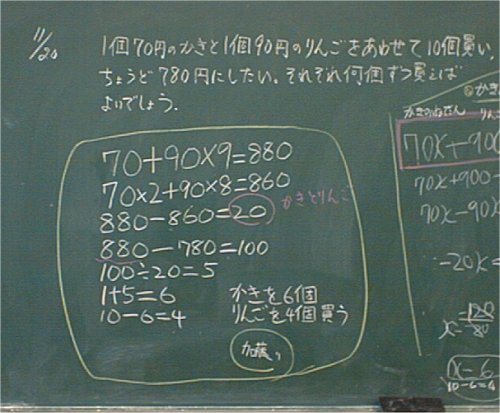 11/20
1個70円のかきと1個90円のりんごをあわせて10個買い、
ちょうど780円にしたい。それぞれ何個ずつ買えば
よいでしょう。
70+90×9=880
70×2+90×8=860
880-860=20 かきとりんご
880-780=100
100÷20=5
1+5=6 かきを6個
10-6=4 りんごを4個買う
加藤
かきのねだん
70x+900
70x+900-
70x-90x
-20x=
x=
x=6
10-6=4